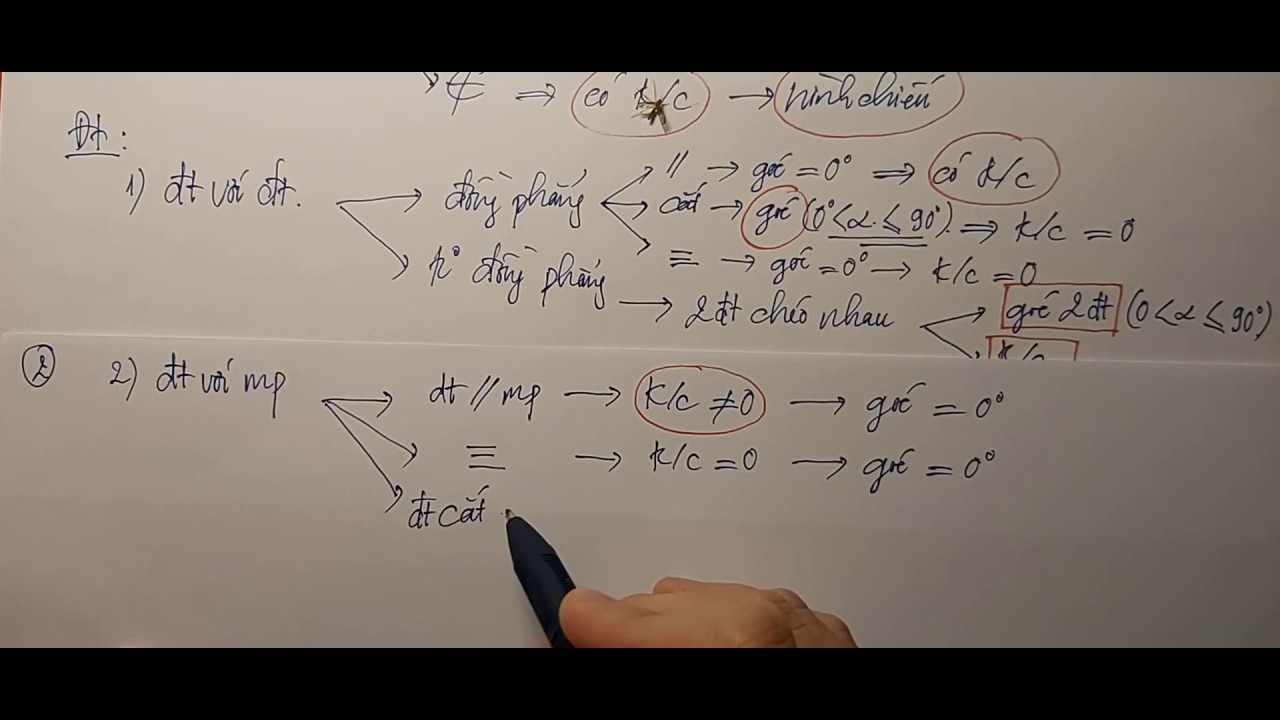 ∉ ⇒ có k/c → hình chiếu
Đt :
1) đt với đt. → đồng phẳng → // → góc = 0° ⇒ có k/c
→ cắt → góc (0° < α ≤ 90°). ⇒ k/c = 0
→ ≡ → góc = 0° → k/c = 0
→ k° đồng phẳng → 2 đt chéo nhau → góc 2 đt (0 < α ≤ 90°)
→ k/c
② 2) đt với mp → dt // mp → k/c ≠ 0 → góc = 0°
→ ≡ → k/c = 0 → góc = 0°
→ đt cắt